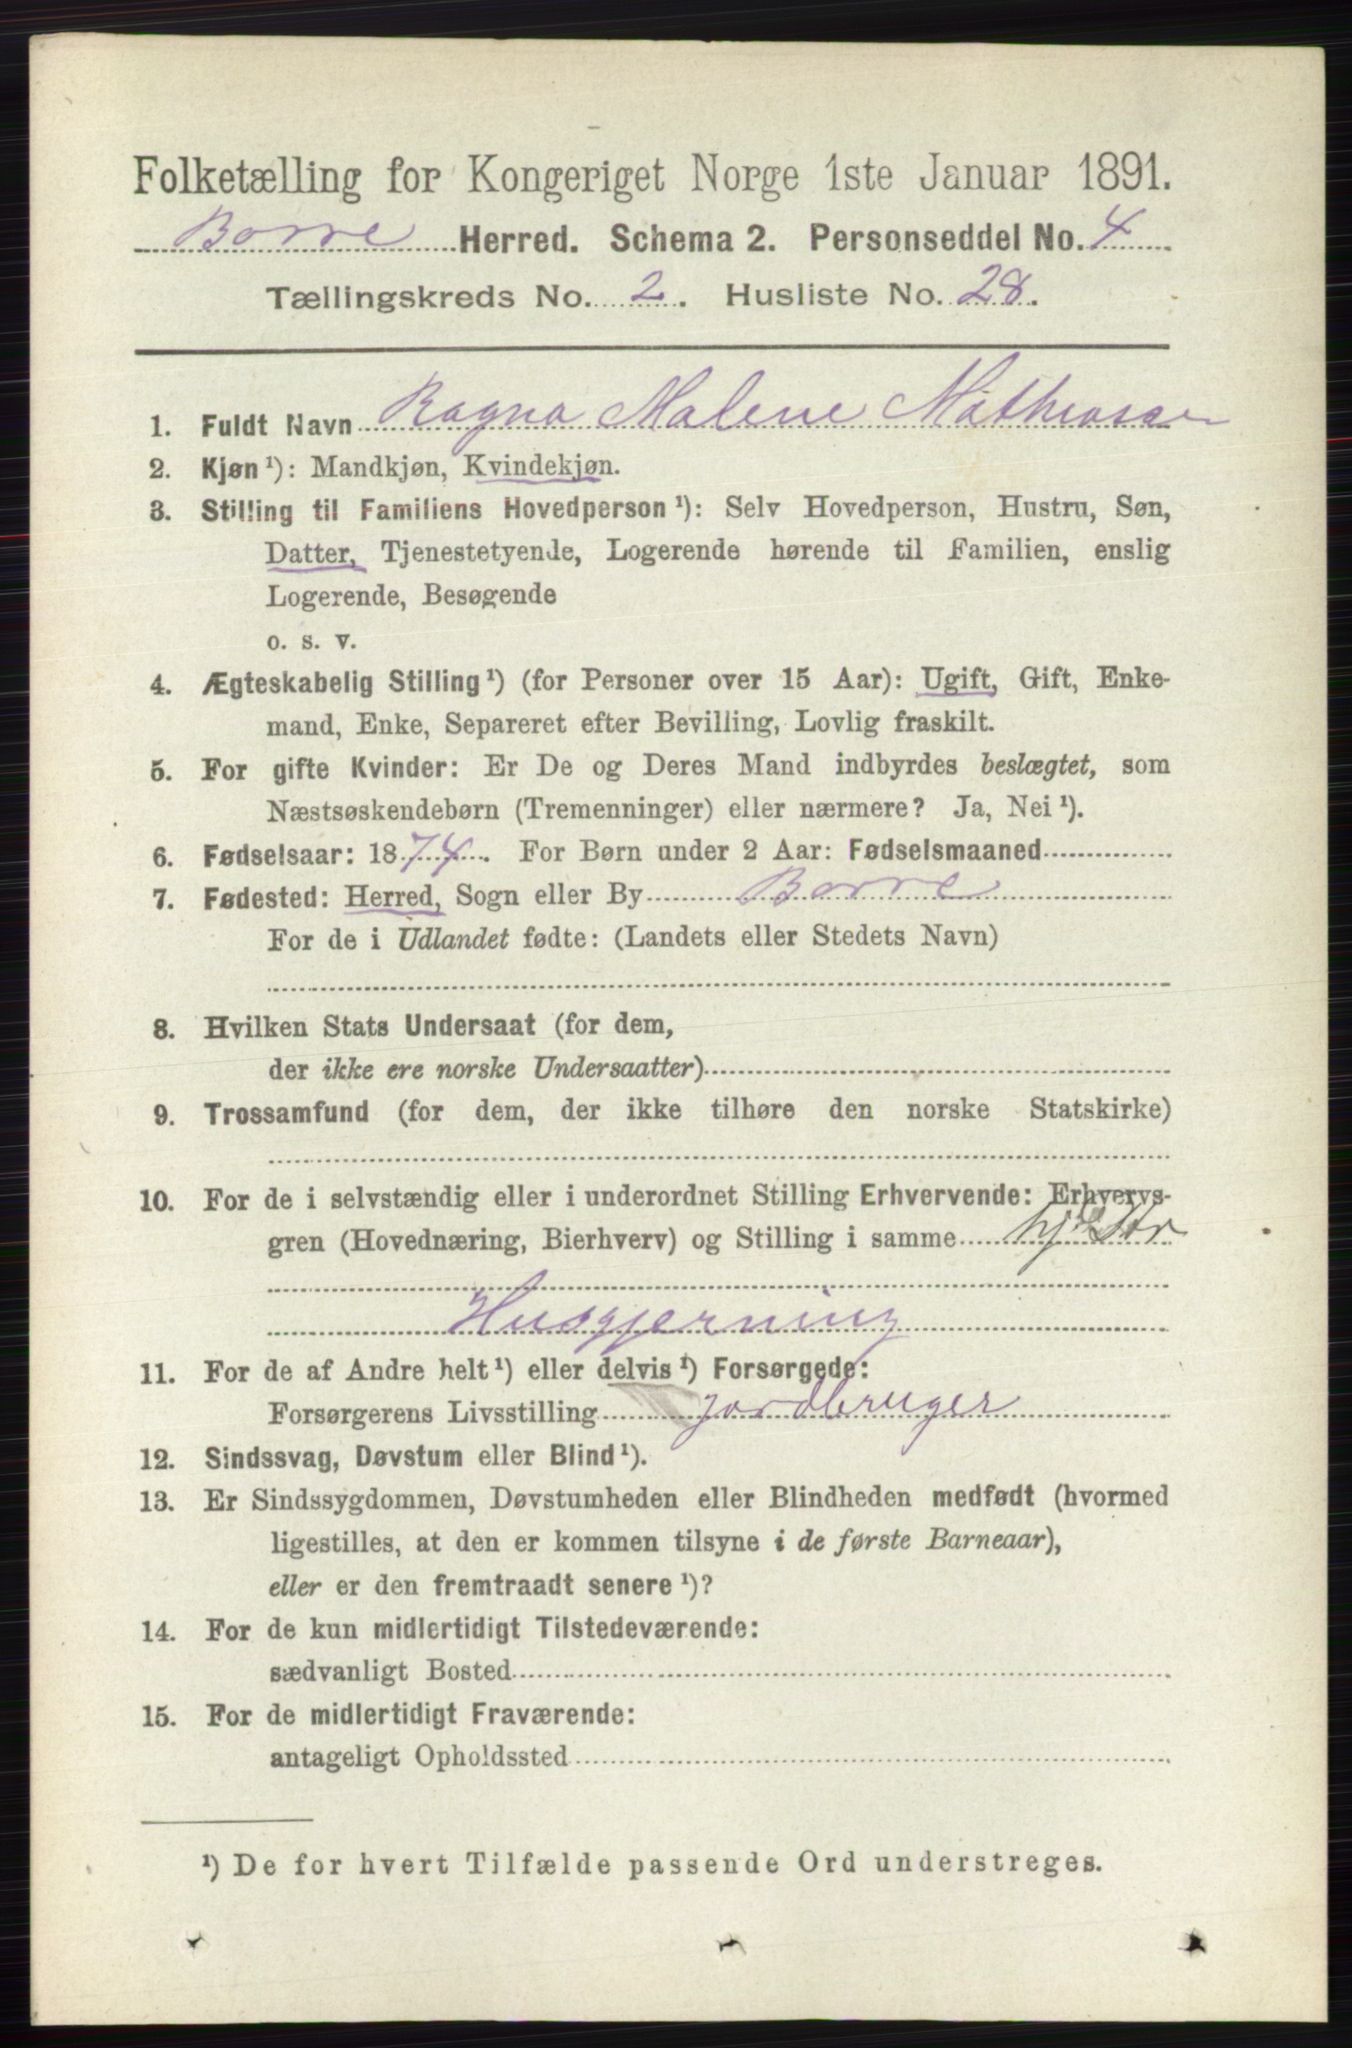 Folketælling for Kongeriget Norge 1ste Januar 1891.
Borre Herred. Schema 2. Personseddel No. 4
Tællingskreds No. 2. Husliste No. 28.
1. Fuldt Navn Ragna Malene Mathiasen
2. Kjøn ¹): Mandkjøn, Kvindekjøn.
3. Stilling til Familiens Hovedperson ¹): Selv Hovedperson, Hustru, Søn,
Datter, Tjenestetyende, Logerende hørende til Familien, enslig
Logerende, Besøgende
o. s. v.
4. Ægteskabelig Stilling ¹) (for Personer over 15 Aar): Ugift, Gift, Enke-
mand, Enke, Separeret efter Bevilling, Lovlig fraskilt.
5. For gifte Kvinder: Er De og Deres Mand indbyrdes beslægtet, som
Næstsøskendebørn (Tremenninger) eller nærmere? Ja, Nei ¹).
6. Fødselsaar: 1874. For Børn under 2 Aar: Fødselsmaaned
7. Fødested: Herred, Sogn eller By Borre
For de i Udlandet fødte: (Landets eller Stedets Navn)
8. Hvilken Stats Undersaat (for dem,
der ikke ere norske Undersaatter)
9. Trossamfund (for dem, der ikke tilhøre den norske Statskirke)
10. For de i selvstændig eller i underordnet Stilling Erhvervende: Erhvervs-
gren (Hovednæring, Bierhverv) og Stilling i samme
Husgjerning
11. For de af Andre helt ¹) eller delvis ¹) Forsørgede:
Forsørgerens Livsstilling jordbruger
12. Sindssvag, Døvstum eller Blind ¹).
13. Er Sindssygdommen, Døvstumheden eller Blindheden medfødt (hvormed
ligestilles, at den er kommen tilsyne i de første Barneaar),
eller er den fremtraadt senere ¹)?
14. For de kun midlertidigt Tilstedeværende:
sædvanligt Bosted
15. For de midlertidigt Fraværende:
antageligt Opholdssted
¹) De for hvert Tilfælde passende Ord understreges.